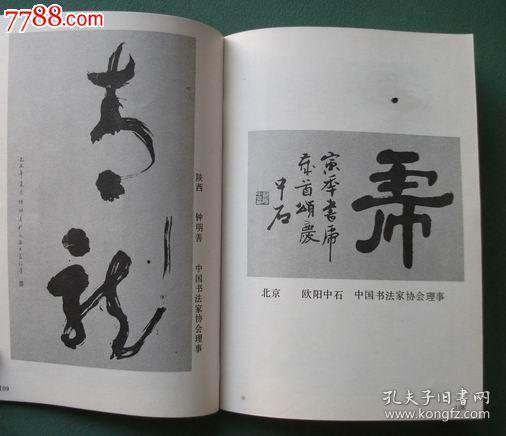 7788.com
青龙
陕西 钟明善 中国书法家协会理事
109
虎
寅年书虎
岁首颂庆
中石
北京 欧阳中石 中国书法家协会理事
孔夫子旧书网
www.kongfz.com